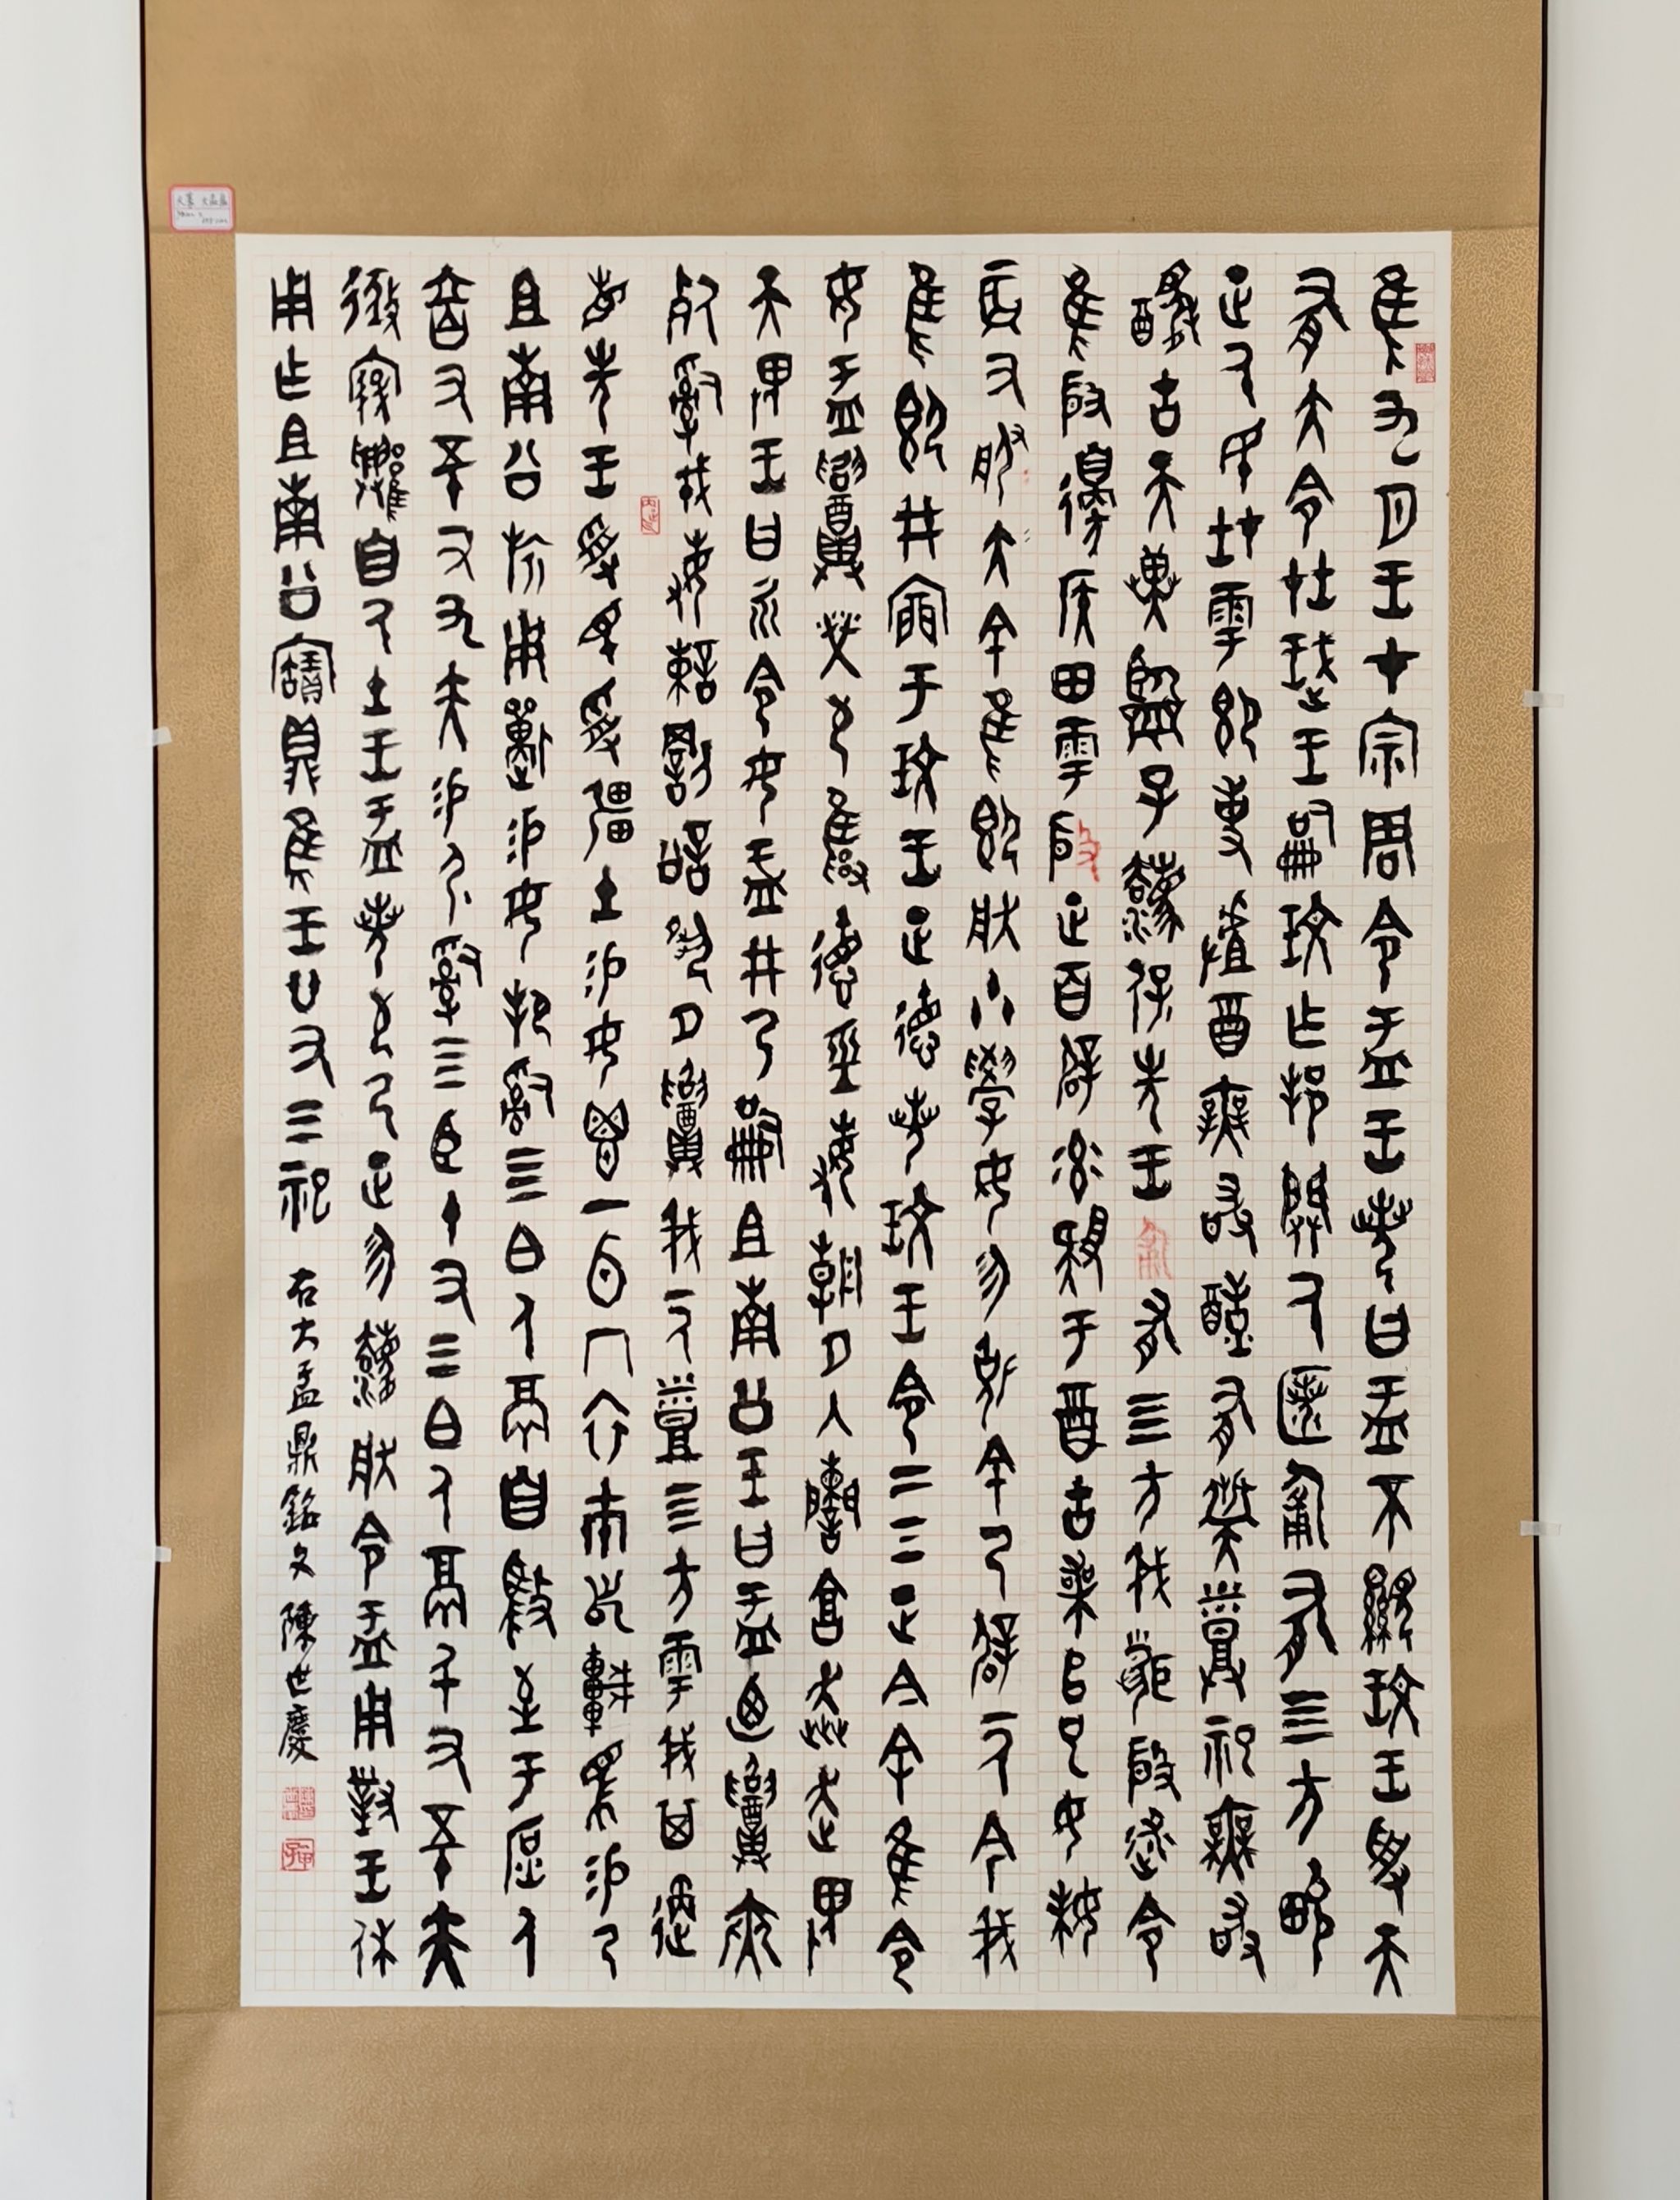 隹九月王才宗周令盂王若曰盂不顯玟王受天
有大令在珷王嗣玟乍邦闢氒匿匍有四方畯
正氒民在雩御事𠭯酉無敢酖有祡烝祀無敢
醻古天異臨子灋保先王匍有四方我聞殷述令
隹殷邊侯田雩殷正百辟率肄于酉古喪𠂤已女妹
辰又大服余隹即朕小學女勿剋余乃辟一人今我
隹即井㐭于玟王正德若玟王令二三正今余隹令
女盂召榮敬雍德巠敏朝夕入讕享奔走畏
天畏王曰𠨘令女盂井乃嗣且南公王曰盂廼召夾
死𤔲戎敏諫罰訟夙夕召我一人烝四方雩我其遹
省先王受民受疆土易女鬯一卣冂衣巿舄車馬易乃
且南公旂用遷易女邦𤔲四白人鬲自馭至于庶人
六百又五十又九夫易尸𤔲王臣十又三白人鬲千又五十夫
𢓊𡫳遷自氒土王盂若敬乃正勿灋朕令盂用對王休
用乍且南公寶鼎隹王廿又三祀 右大盂鼎銘文 陳世慶